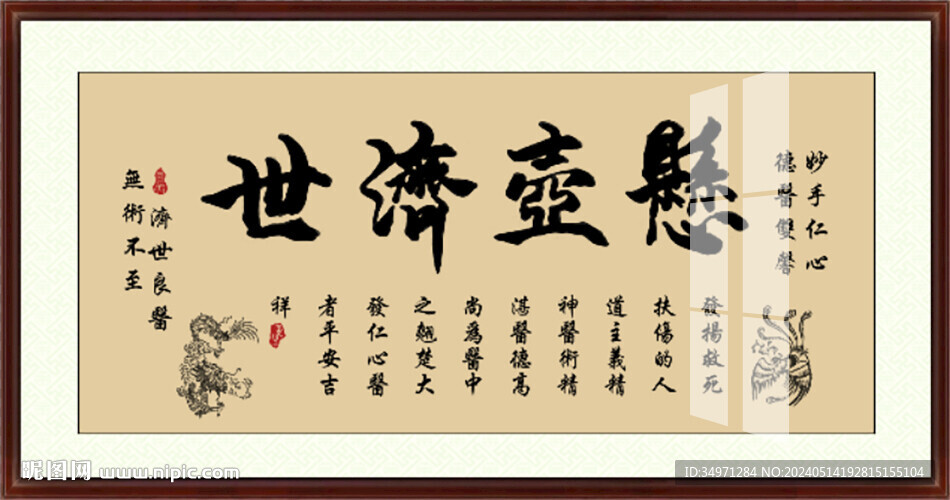 懸壺濟世
妙手仁心
德醫雙馨
發揚救死
扶傷的人
道主義精
神醫術精
湛醫德高
尚為醫中
之翹楚大
發仁心醫
者平安吉
祥
濟世良醫
無術不至
昵图网 www.nipic.com
ID:34971284 NO:20240514192815155104